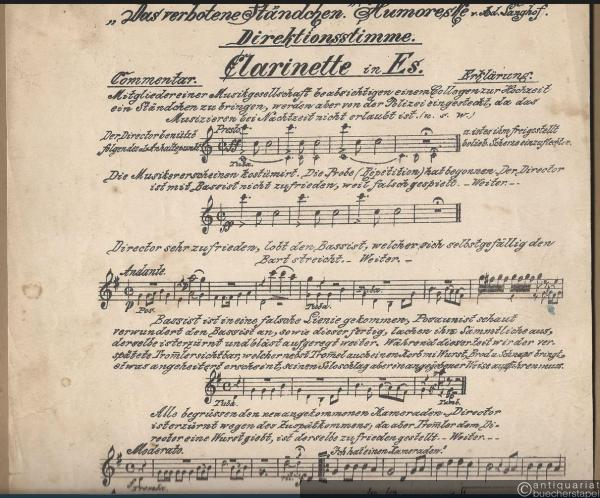 „Das verbotene Ständchen." Humoreske v. Ad. Langhof.
Direktionsstimme.
Clarinette in Es.
Commentar.
Erklärung:
Mitglieder einer Musikgesellschaft beabsichtigen einem Collegen zur Hochzeit
ein Ständchen zu bringen, werden aber von der Polizei eingesteckt, da das
Musizieren bei Nachtzeit nicht erlaubt ist. (u. s. w.)
Der Director benützt
folgende
Presto.
u. ist es ihm freigestellt
belieb. Scherze einzuflechten.
Tuba.
Die Musiker erscheinen kostümirt. Die Probe (Repetition) hat begonnen. Der Director
ist mit Bassist nicht zufrieden, weil falsch gespielt. - Weiter. - -
Director sehr zufrieden, lobt den Bassist, welcher sich selbstgefällig den
Bart streicht. - Weiter. -
Andante.
Pos.
Tuba.
Tuba.
Bassist ist in eine falsche Lienie gekommen, Posaunist schaut
verwundert den Bassist an, sowie dieser fertig, lachen ihn Sämmtliche aus,
derselbe ist erzürnt und bläst aufgeregt weiter. Während dieser Zeit wird der ver-
spätete Tromler sichtbar, welcher nebst Tromel auch einen Korb mit Wurst, Brod u. Schnaps bringt,
etwas angeheitert erscheint, seinen Soloschlag aber in angegebener Weise ausführen muss.
Tuba.
Tamb.
Alle begrüssen den neu angekommenen Kameraden. Director
ist erzürnt wegen des Zuspätkommens, da aber Tromler dem Di-
rector eine Wurst giebt, ist derselbe zufrieden gestellt. - Weiter. - -
Moderato.
Ich hat einen Kameraden!
©antiquariat
buecherstapel